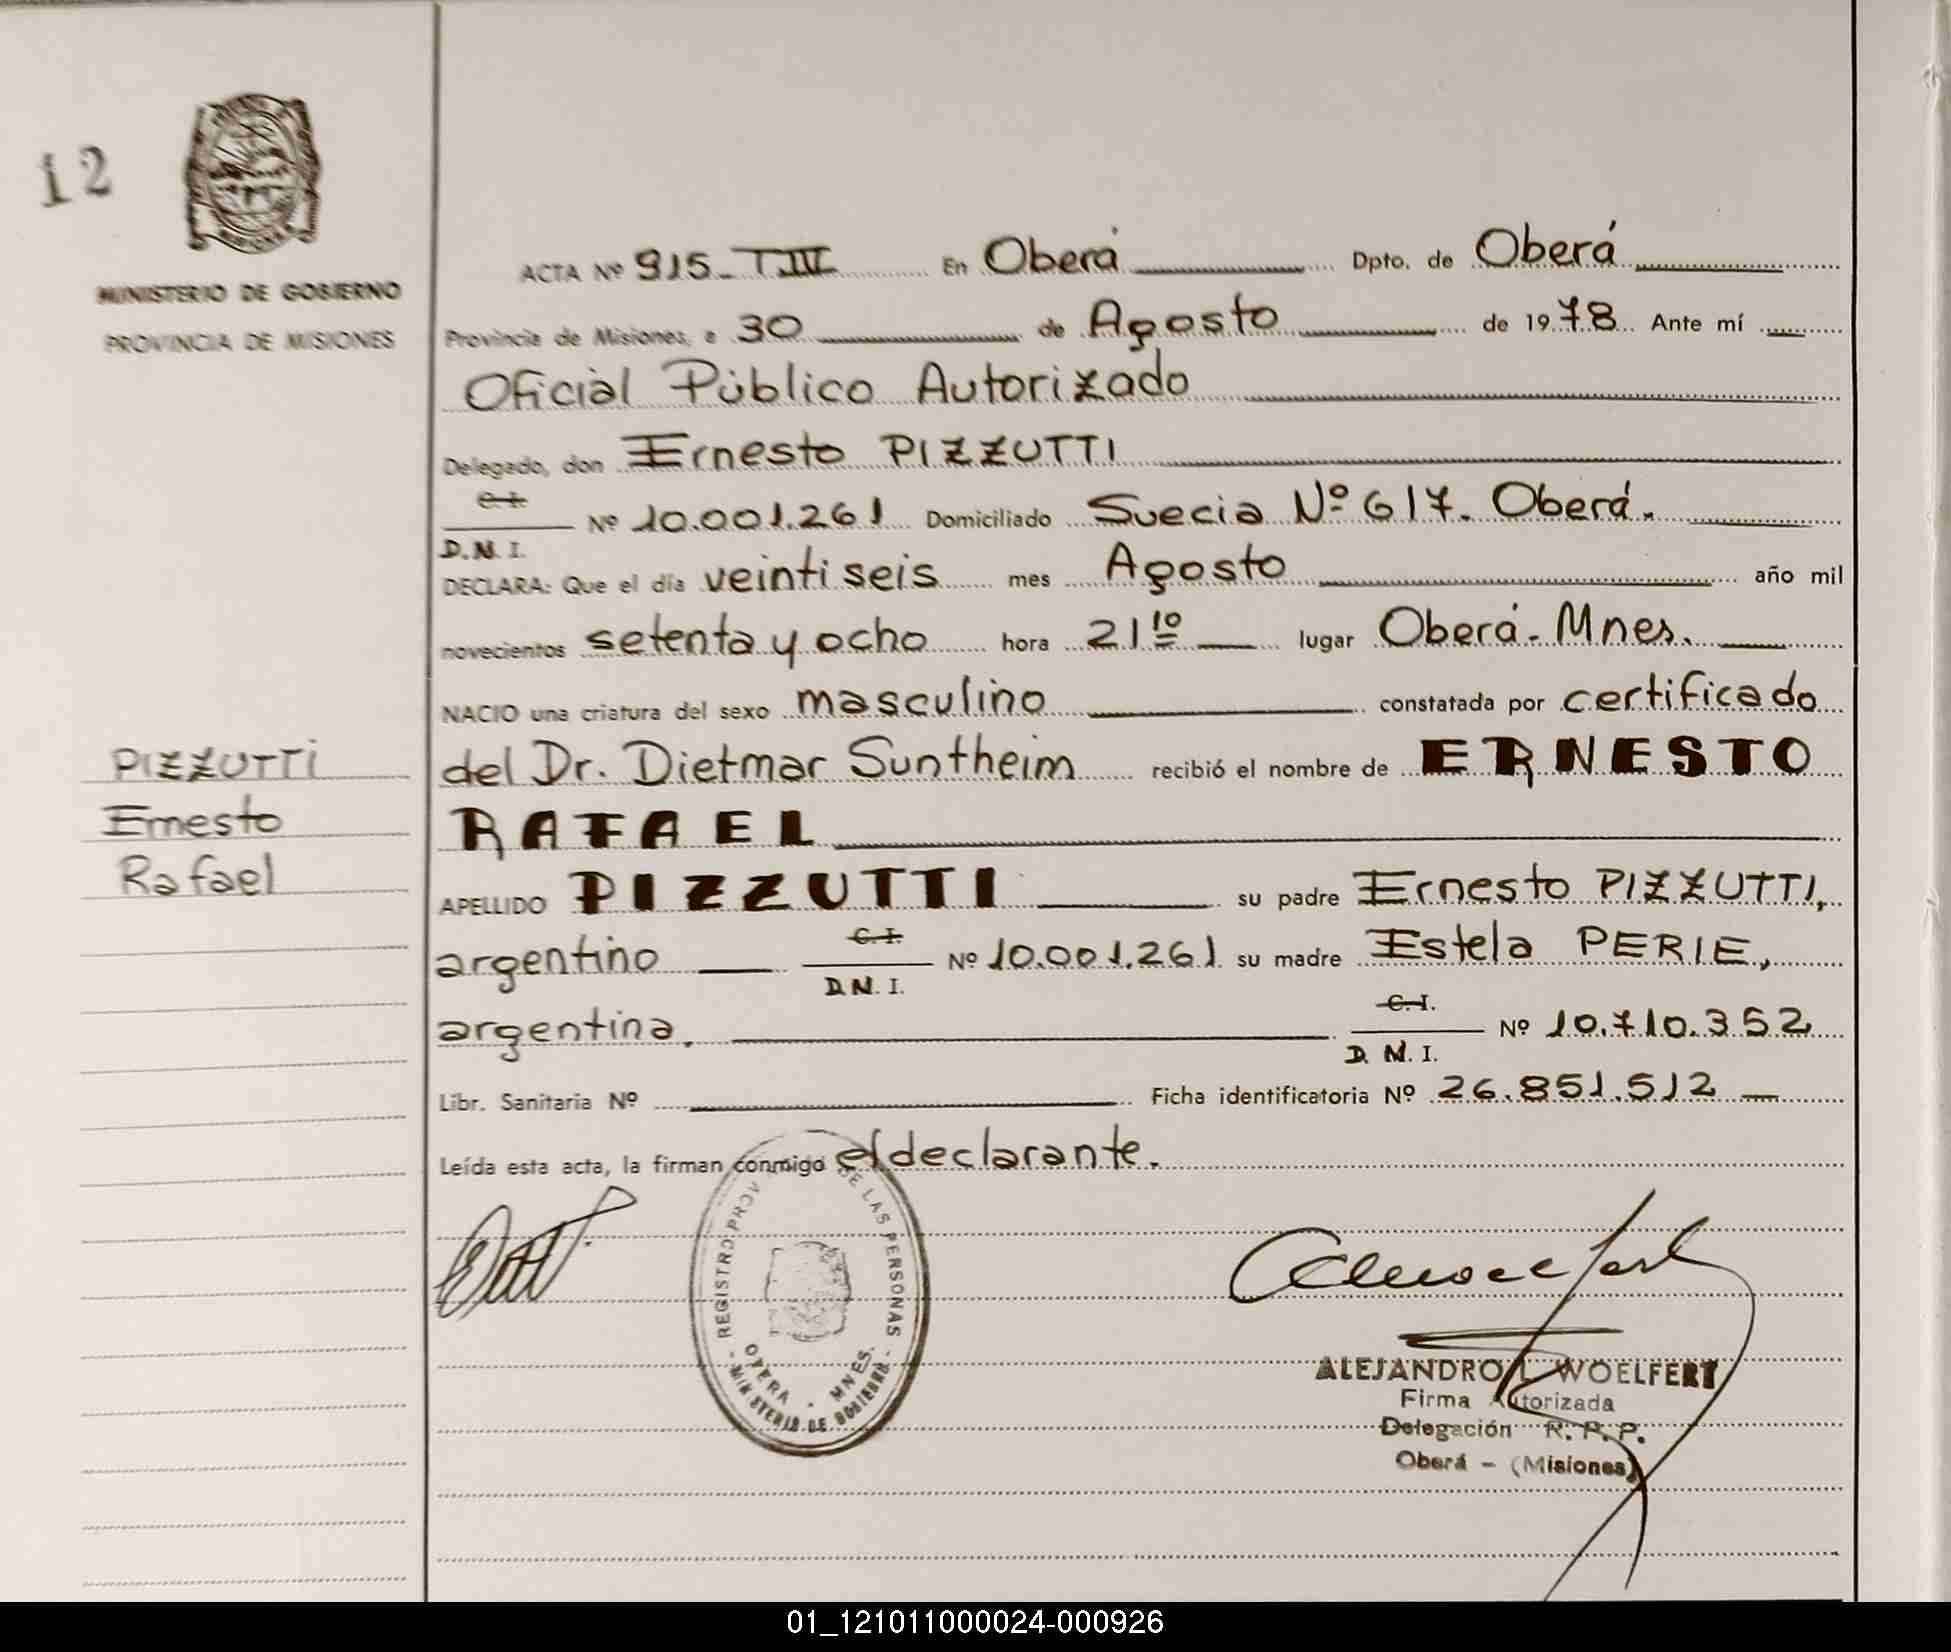 12
MINISTERIO DE GOBIERNO
PROVINCIA DE MISIONES
PIZZUTTI
Ernesto
Rafael
ACTA Nº 915_TIV En Oberá Dpto. de Oberá
Provincia de Misiones, a 30 de Agosto de 1978 Ante mí
Oficial Público Autorizado
Delegado, don Ernesto PIZZUTTI
C.I.
Nº 10.001.261 Domiciliado Suecia Nº 617. Oberá.
D.N.I.
DECLARA: Que el día veintiseis mes Agosto año mil
novecientos setenta y ocho hora 21 10 lugar Oberá-Mnes.
NACIO una criatura del sexo masculino constatada por certificado
del Dr. Dietmar Suntheim recibió el nombre de ERNESTO
RAFAEL
APELLIDO PIZZUTTI su padre Ernesto PIZZUTTI,
argentino C.I. Nº 10.001.261 su madre Estela PERIE,
D.N.I.
argentina. C.I. Nº 10.710.352
D.N.I.
Libr. Sanitaria Nº Ficha identificatoria Nº 26.851.512
Leída esta acta, la firman conmigo el declarante.
REGISTRO PROV DE LAS PERSONAS
OBERA - MNES.
- MINISTERIO DE GOBIERNO -
ALEJANDRO L. WOELFERT
Firma Autorizada
Delegación R. P. P.
Oberá - (Misiones)
01_121011000024-000926